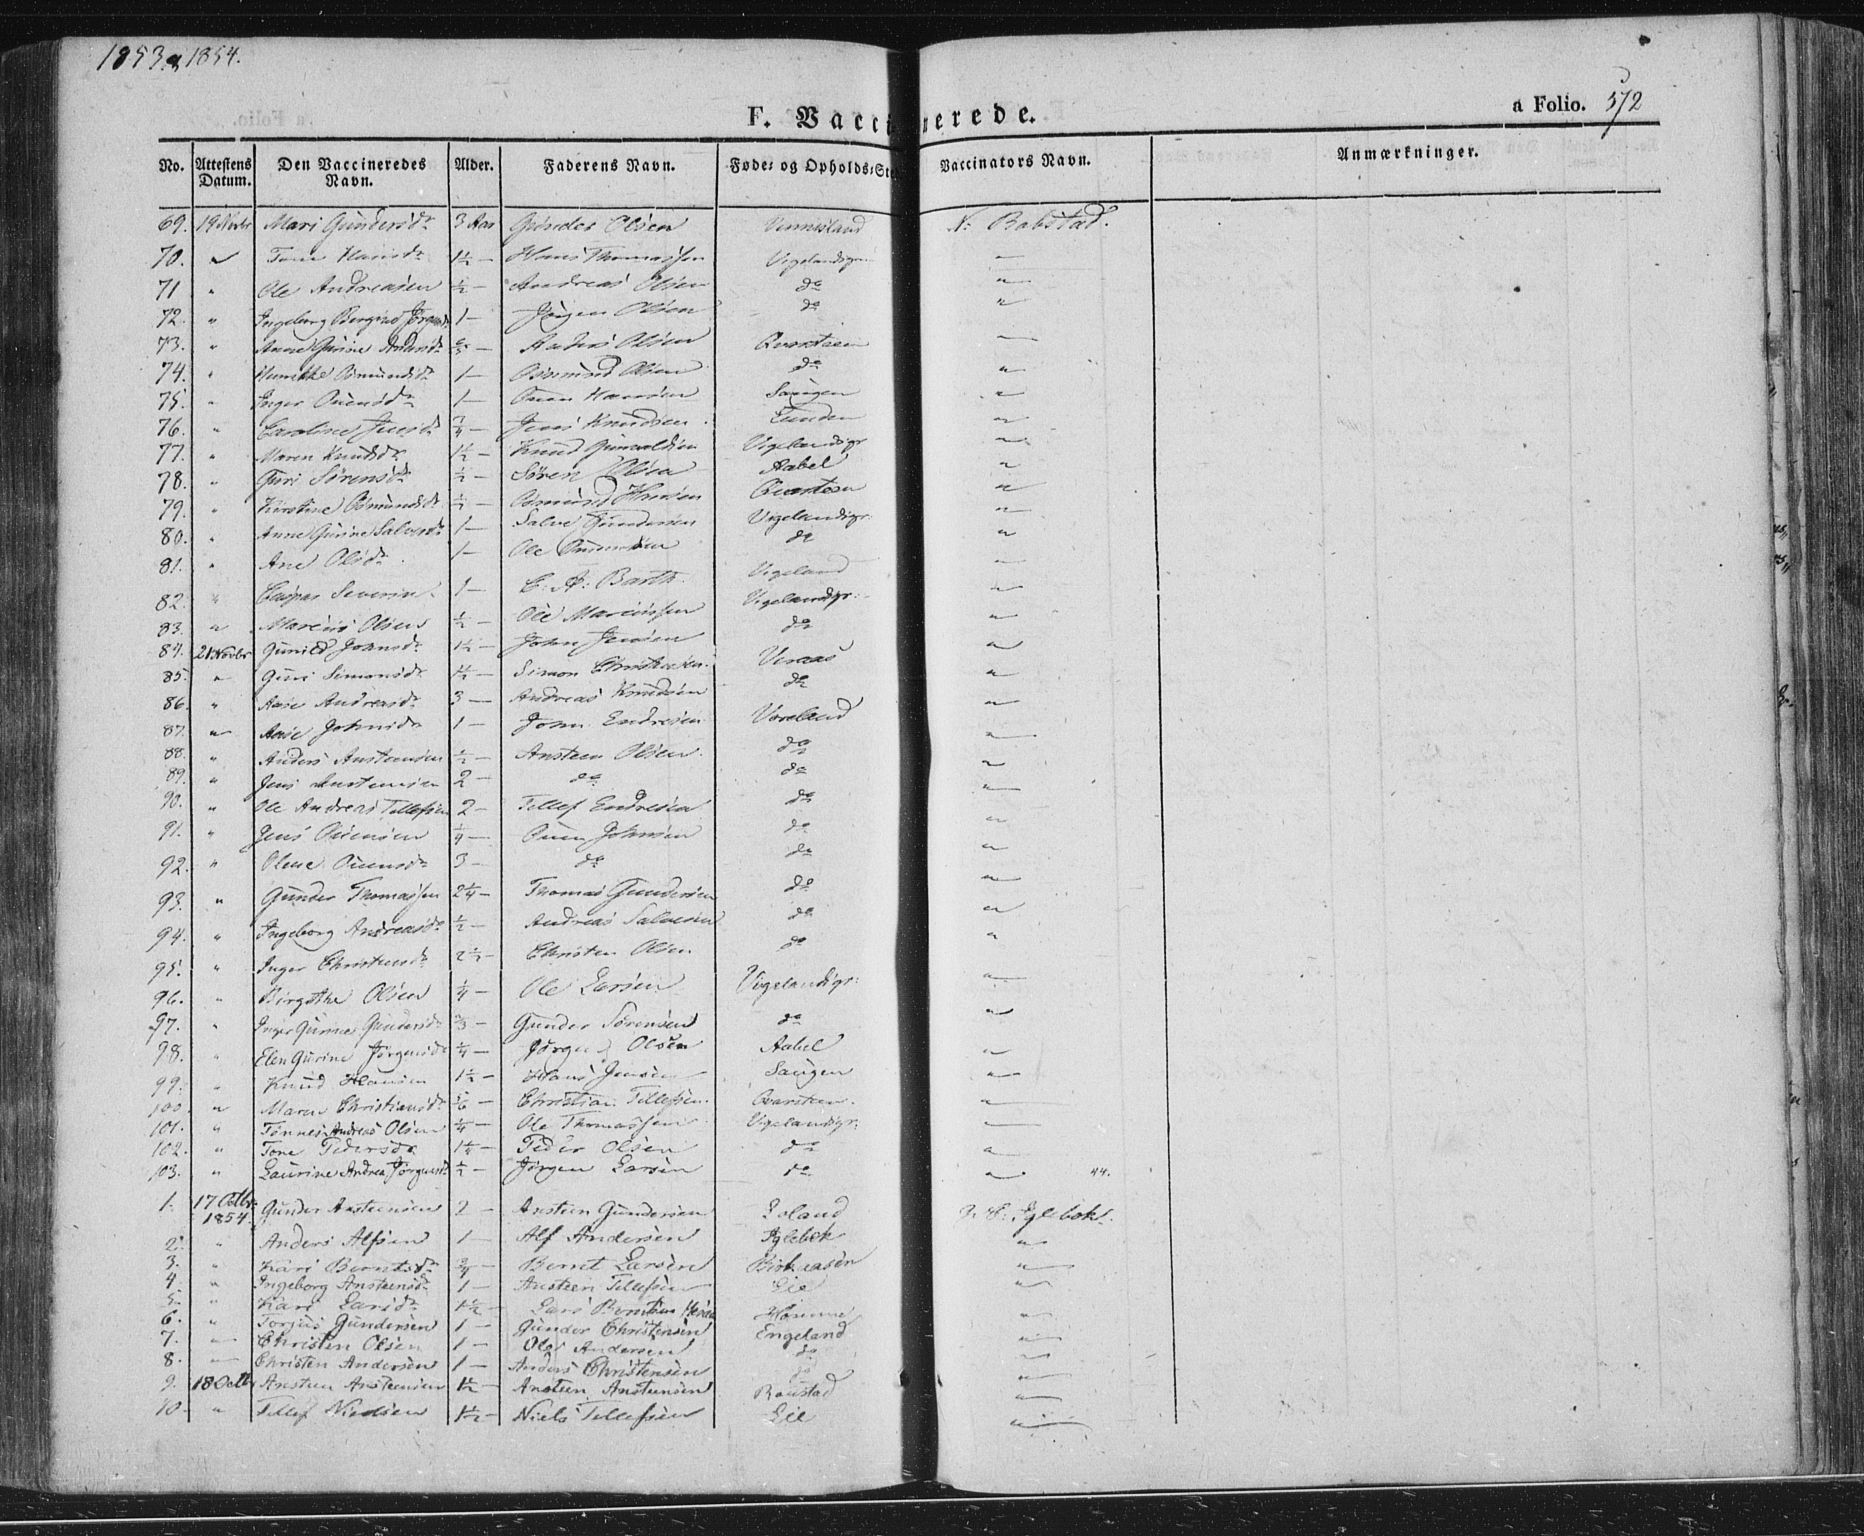 1853 & 1854.
F. Vaccinerede.
a Folio. 572
No. Attestens Datum. Den Vaccineredes Navn. Alder. Faderens Navn. Føde- og Opholds-Sted Vaccinators Navn. Anmærkninger.
69. 19 Novbr Mari Gundersdr 3 Aar Gunder Olsen Vennisland N. Babstad.
70. " Hansdr 1½ — Hans Thomassen Vigelandsgr "
71 " Ole Andreasen ½ — Andreas Olsen do "
72. " Ingeborg Jørgensdr 1 — Jørgen Olsen do "
73. " Anne Gurine Andersdr — Anders Olsen Qvarsteen "
74. " Osmundsdr 1 — Osmund Olsen do "
75. " Inger 1 — Saugen "
76. " Caroline Jensdr ¾ — Jens Knudsen "
77. " Maren Knudsdr 1½ — Knud Vigelandsgr "
78. " Guri Sørensdr ½ — Søren Olsen Aabel "
79. " Kirstine Osmundsdr ½ — Osmund Qvarsteen "
80. " Anne Gurine Salvesdr 1 — Salve Gundersen Vigelandsgr. "
81. " Ane Olsdr 1 — Ole do "
82. " Caspar Severin 1 — C. A. Barth Vigeland "
83. " Marcus Olsen ½ — Ole Marcussen Vigelandsgr. "
84. 21 Novbr Gunild Johnsdr 1½ — John Jensen do "
85. " Guri Simonsdr 1½ — Simon Christensen Veraas "
86. " Aase Andreasdr 3 — Andreas Knudsen do "
87. " Aase Johnsdr 1 — John Endresen Voreland "
88. " Anders Ansteensen ½ — Ansteen Olsen do "
89. " Jens Ansteensen 2 — do do "
90. " Ole Andreas Tellefsen 2 — Tellef Endresen do "
91. " Jens Ouensen ¼ — Ouen Johnsen do "
92. " Olene Ouensdr 3 — do do "
93. " Gunder Thomassen 2¼ — Thomas Gundersen do "
94. " Ingeborg Andreasdr ½ — Andreas Salvesen do "
95. " Inger Christensdr 2½ — Christen Olsen do "
96. " Birgithe Olsen ¼ — Ole Larsen Vigelandsgr: "
97. " Inger Gurine Gundersdr — Gunder Sørensen do "
98. " Elen Gurine Jørgensdr — Jørgen Olsen Aabel "
99. " Knud Hansen 1½ — Hans Jensen Saugen "
100. " Maren Christiansdr — Christian Tellefsen. Qvarsteen. "
101. " Tønnes Andreas Olsen ¼ — Ole Thomassen Vigelandsgr: "
102. " Tone Pedersdr 1¼ — Peder Olsen do "
103. " Laurine Andrea Jørgensdr ½ — Jørgen Larsen do " 44.
1. 17 Octbr 1854. Gunder Ansteensen 2 — Ansteen Gundersen Loland Iglebek.
2. " Anders Alfsen 1 — Alf Andersen Iglebek "
3. " Kari Berntsdr ¾ — Bernt Larsen Birkaasen "
4. " Ingeborg Ansteensdr 1 — Ansteen Tellefsen Lie "
5. " Kari Larsdr 1½ — Lars Berntsen Homme "
6. " Torjus Gundersen 1 — Gunder Christensen Engeland "
7. " Christen Olsen 1 — Ole Andersen do "
8. " Christen Andersen 1 — Anders Christensen do "
9. 18 Octbr Ansteen Ansteensen 1½ — Ansteen Ansteensen "
10. " Tellef Nielsen 1½ — Niels Tellefsen Lie "